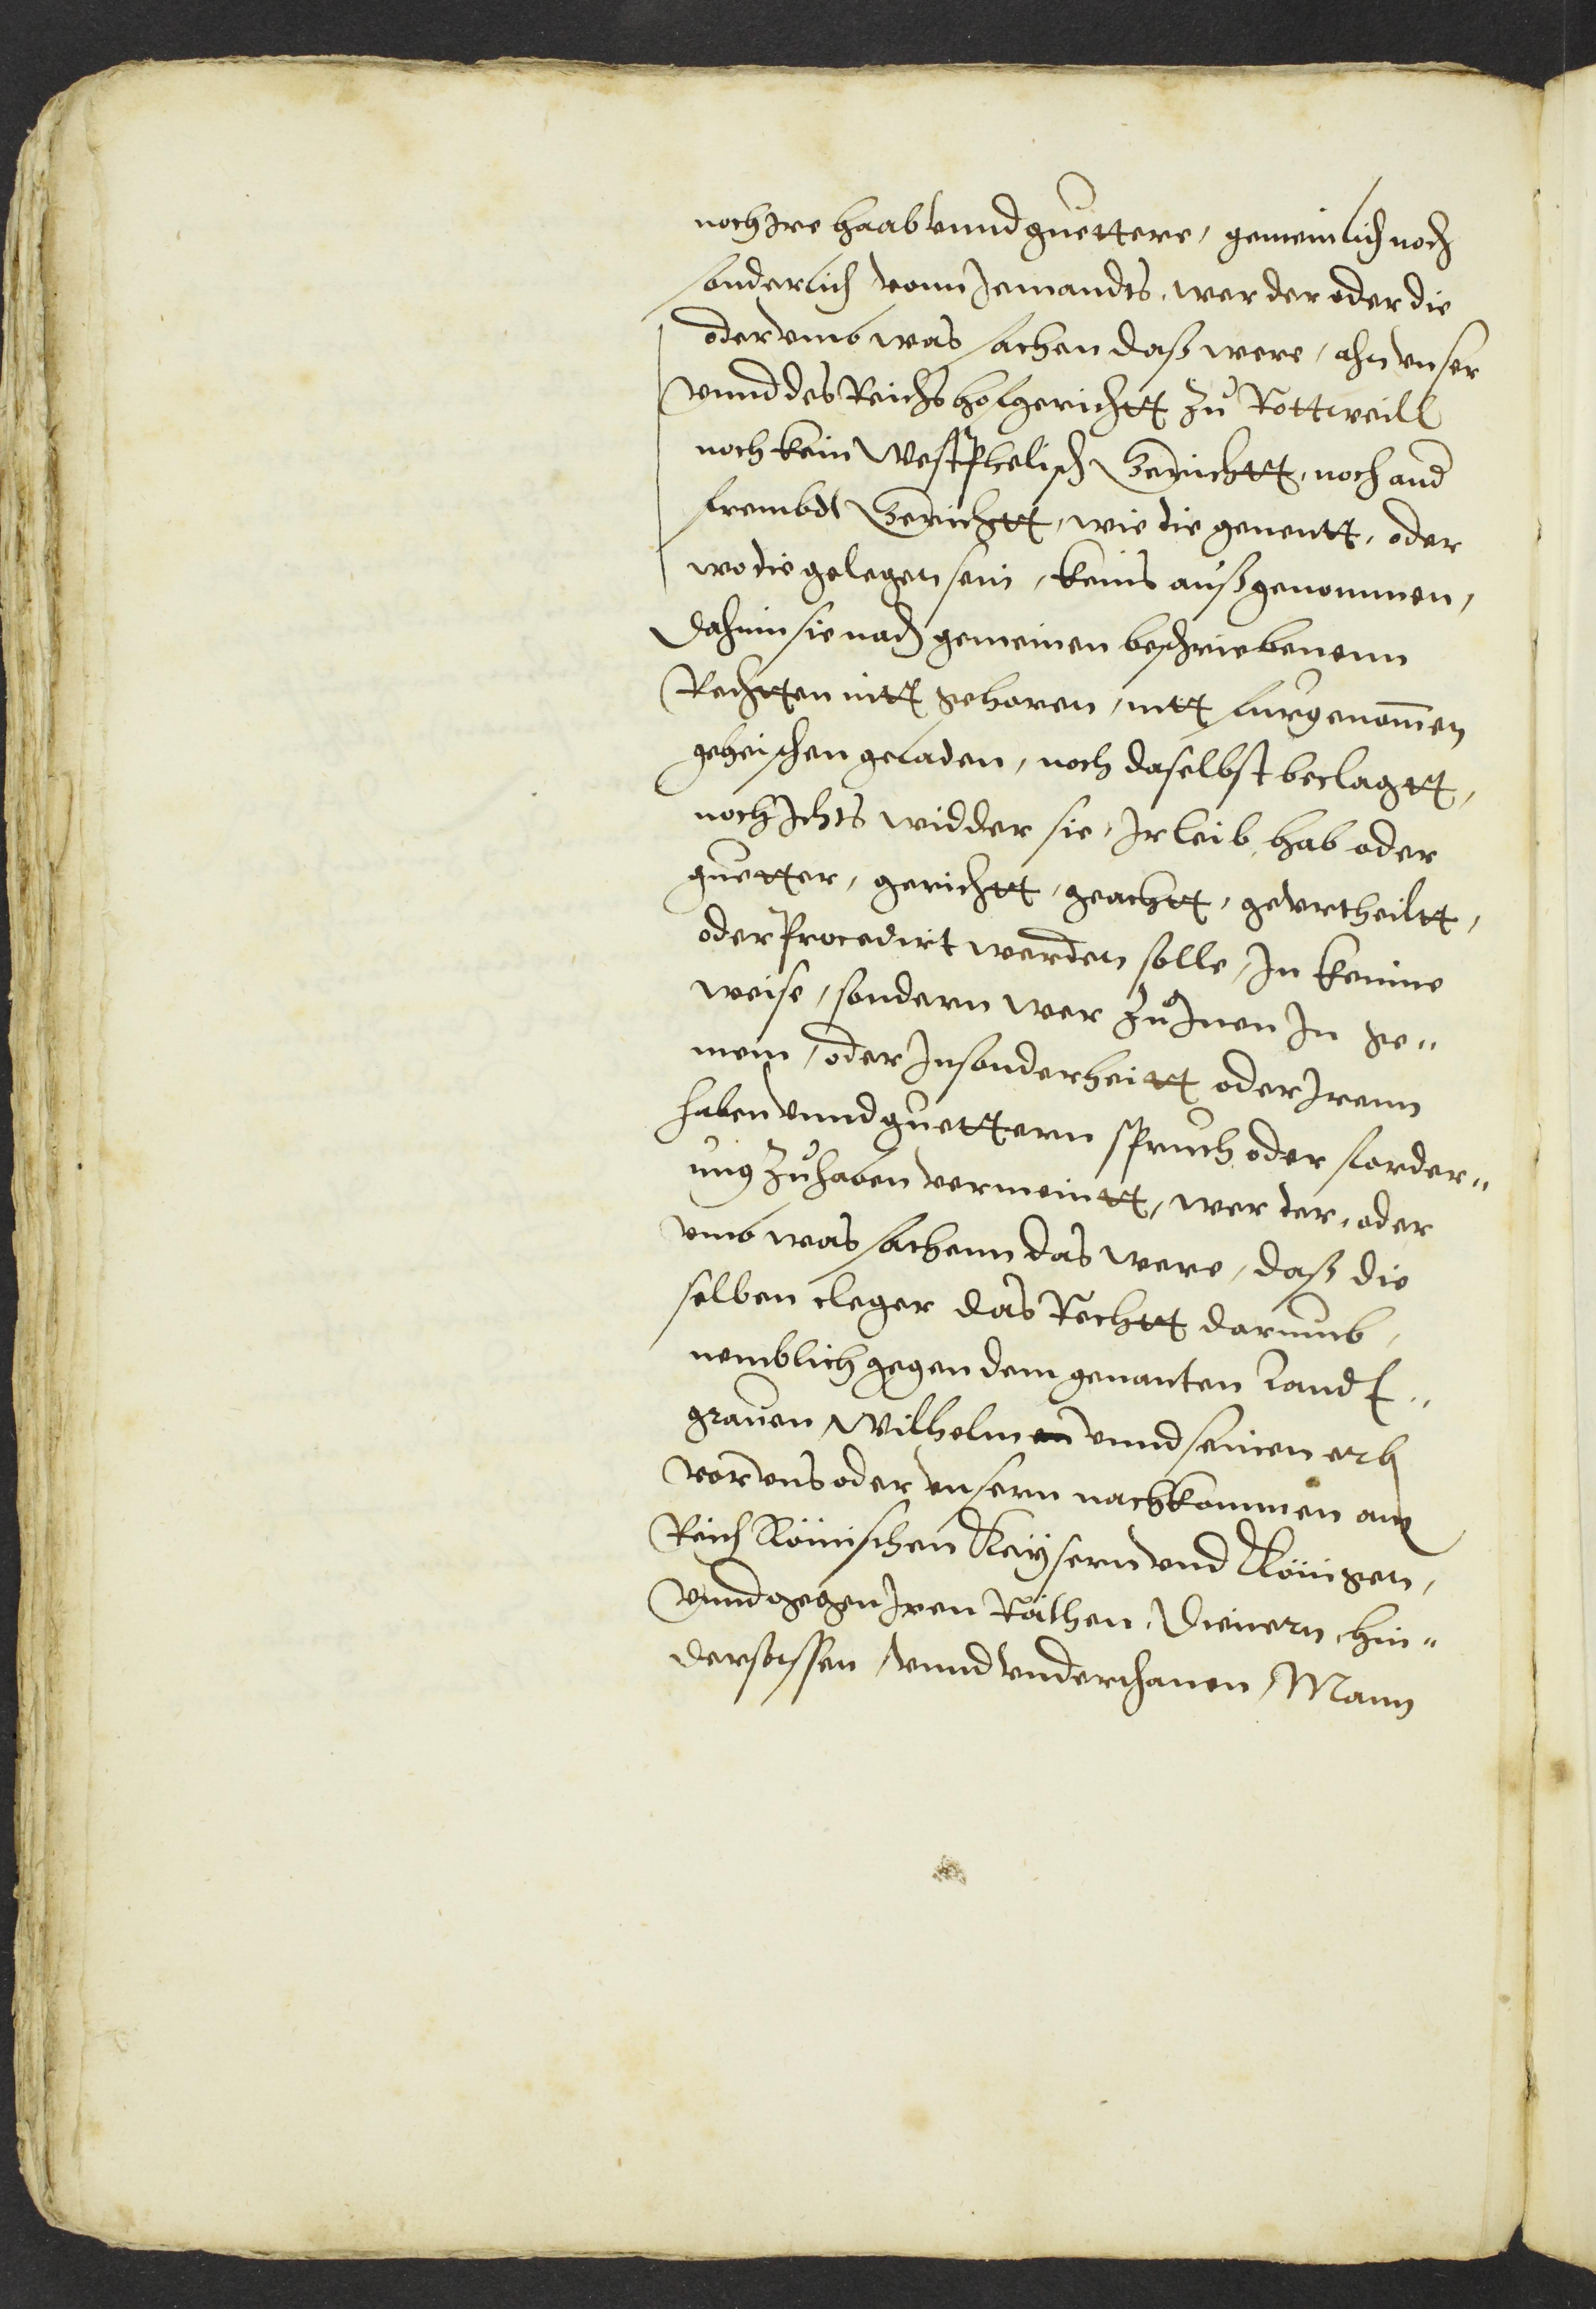 noch Ire haab vnnd guettere, gemeinlich noch
sonderlich vonn Jemandts, wer der oder die
oder vmb was sachen daß were, ahn vnser
vnnd des Reichs hofgerichtt zu Rottweill
noch kein Westphelisch Gerichtt, noch and
frembdt Gerichtt, wie die genentt, oder
wo die gelegen sein, keins außgenommen,
dahinn sie nach gemeinen beschriebenenn
Rechtten nitt gehoren, nitt furgenommen
geheischen geladen, noch daselbst beclagtt,
noch Ichts widder sie, Ir leib, hab oder
guetter, gerichtt, geachtt, gevrtheiltt,
oder Procedirt werden solle, In keinne
weise, sondern wer zu Inen In ge¬
mein, oder Insonderheitt oder Irenn
haben vnnd guetternn spruch oder forder¬
ung zuhaben vermeintt, wer der, oder
vmb was sachenn das were, daß die
selben cleger das Rechtt darumb,
nemblich gegen dem genanten Landt¬
grauen Wilhelmen vnnd seinen erb
vor vns oder vnsern nachkommen am
Reich Römischen Keysern vnd Königen,
vnnd gegen Iren Räthen, Dienern, hin¬
dersassen, vnnd vnderthanen Mann